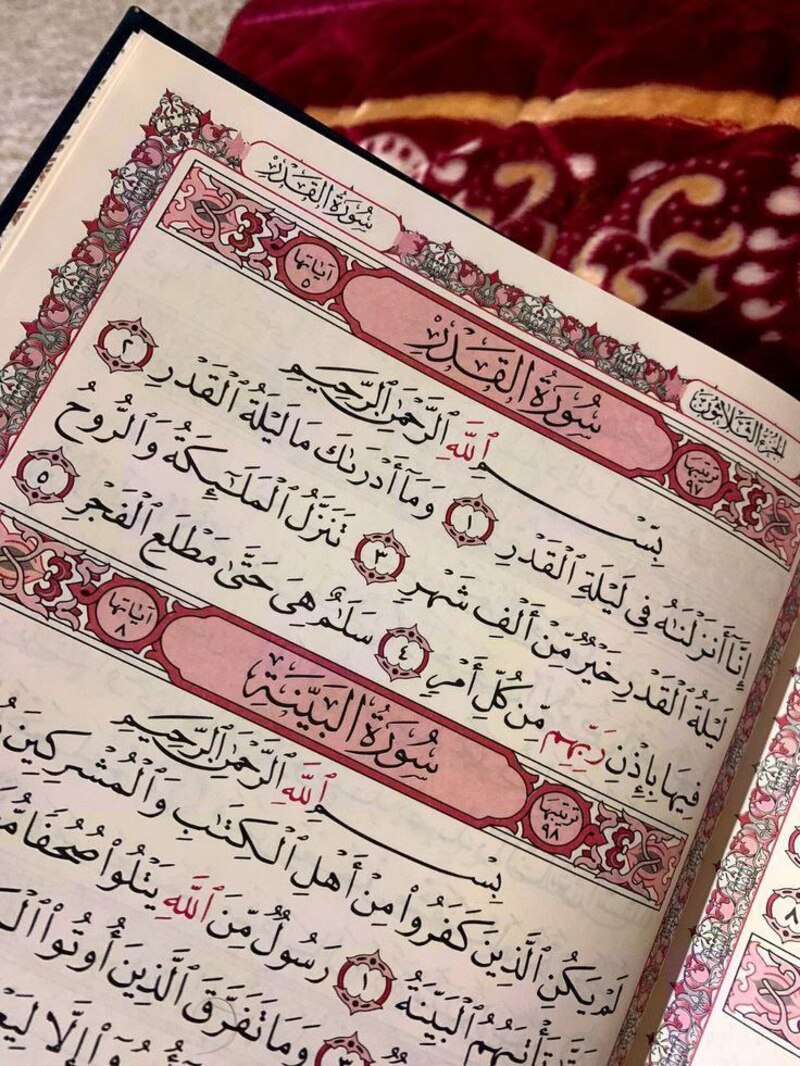 الجزء الثلاثون
سُورَةُ القَدْرِ
ترتيبها ٩٧ سُورَةُ القَدْرِ آياتها ٥
بِسْمِ ٱللَّهِ ٱلرَّحْمَٰنِ ٱلرَّحِيمِ
إِنَّآ أَنزَلْنَٰهُ فِي لَيْلَةِ ٱلْقَدْرِ ١ وَمَآ أَدْرَىٰكَ مَا لَيْلَةُ ٱلْقَدْرِ ٢
لَيْلَةُ ٱلْقَدْرِ خَيْرٌ مِّنْ أَلْفِ شَهْرٍ ٣ تَنَزَّلُ ٱلْمَلَٰٓئِكَةُ وَٱلرُّوحُ
فِيهَا بِإِذْنِ رَبِّهِم مِّن كُلِّ أَمْرٍ ٤ سَلَٰمٌ هِيَ حَتَّىٰ مَطْلَعِ ٱلْفَجْرِ ٥
ترتيبها ٩٨ سُورَةُ البَيِّنَةِ آياتها ٨
بِسْمِ ٱللَّهِ ٱلرَّحْمَٰنِ ٱلرَّحِيمِ
لَمْ يَكُنِ ٱلَّذِينَ كَفَرُوا۟ مِنْ أَهْلِ ٱلْكِتَٰبِ وَٱلْمُشْرِكِينَ
تَأْتِيَهُمُ ٱلْبَيِّنَةُ ١ رَسُولٌ مِّنَ ٱللَّهِ يَتْلُوا۟ صُحُفًا
٣ وَمَا تَفَرَّقَ ٱلَّذِينَ أُوتُوا۟
إِلَّا
٨